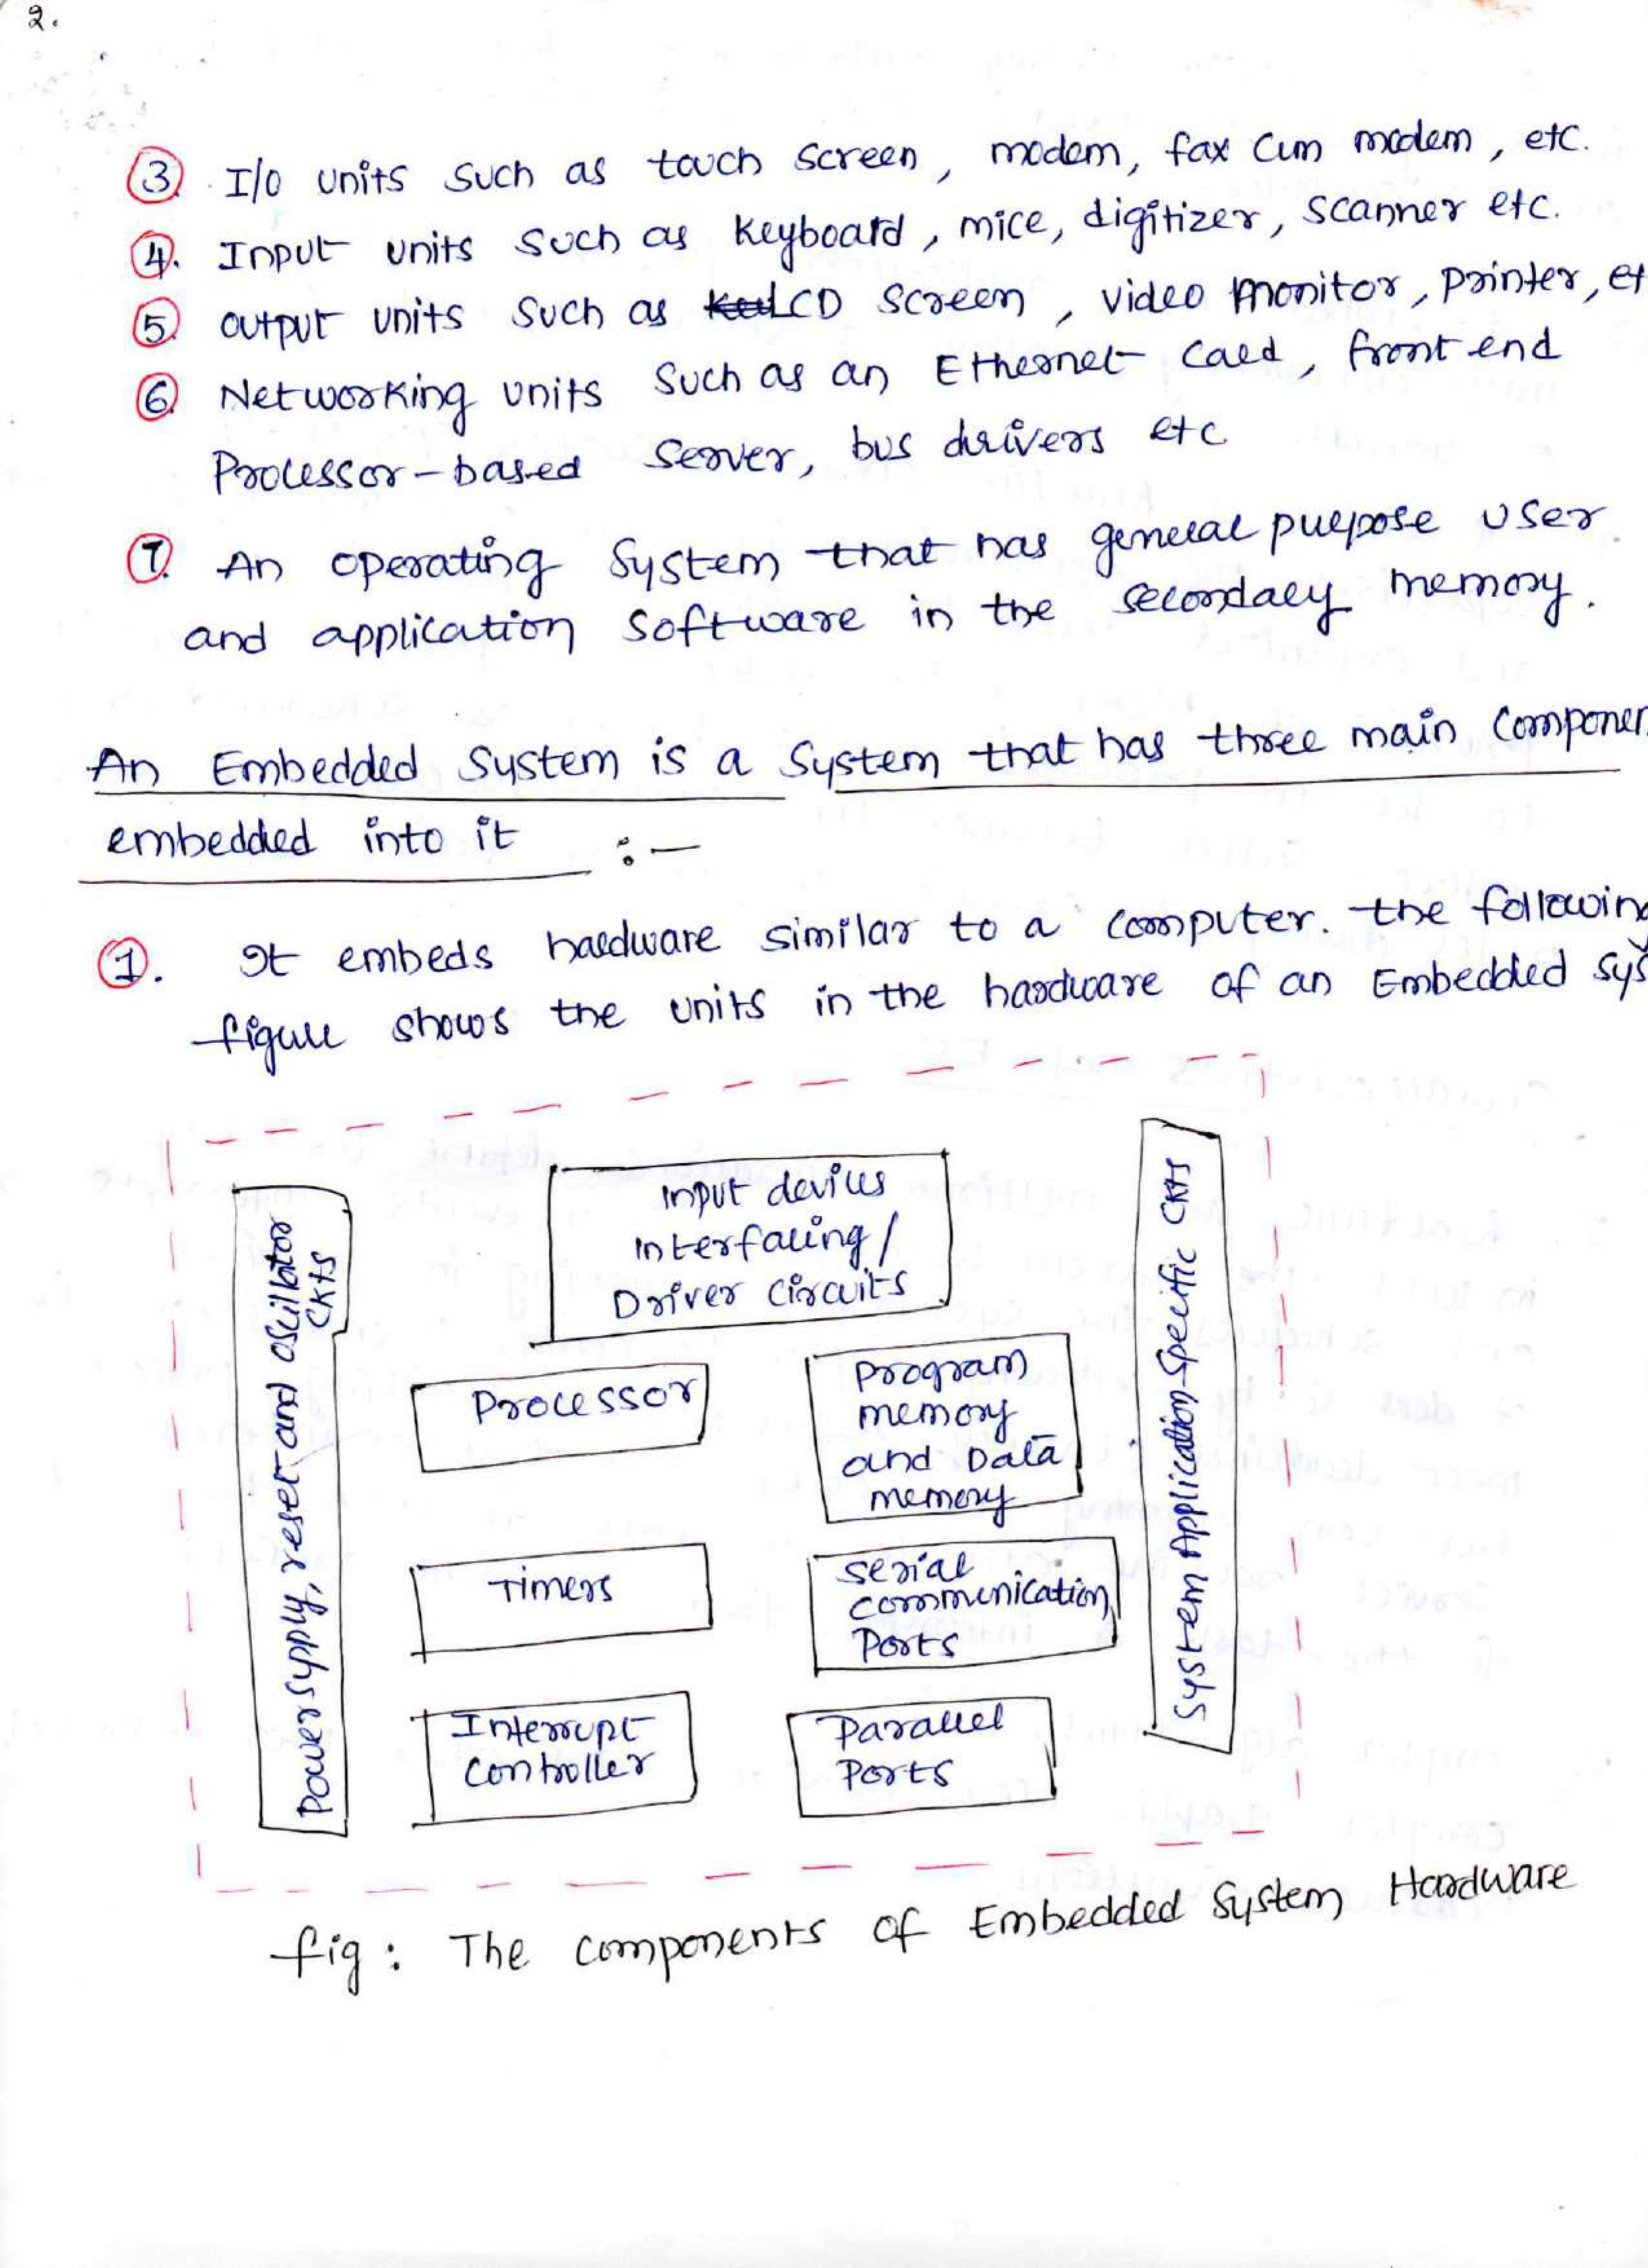 2.
3. I/O units such as touch screen, modem, fax cum modem, etc.
4. Input units such as keyboard, mice, digitizer, scanner etc.
5. output units such as LCD screen, video monitor, printer, et
6. Networking units such as an Ethernet card, front end
Processor-based server, bus drivers etc
7. An operating system that has general purpose user
and application software in the secondary memory.
An Embedded System is a System that has three main Componen
embedded into it :-
1. It embeds hardware similar to a computer. the following
figure shows the units in the hardware of an Embedded sys
Power supply, reset and oscillator
CKts
Input devices
interfacing/
Driver circuits
Processor
Program
memory
and Data
memory
Timers
serial
communication
Ports
Interrupt
Controller
Parallel
Ports
System Application-Specific CKts
fig: The components of Embedded System Hardware